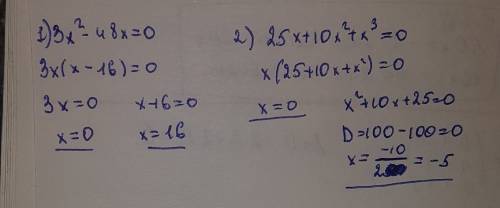 1) 3x² - 48x = 0
3x(x - 16) = 0
3x = 0 x - 16 = 0
x = 0 x = 16
2) 25x + 10x² + x³ = 0
x(25 + 10x + x²) = 0
x = 0 x² + 10x + 25 = 0
D = 100 - 100 = 0
x = -10/2 = -5